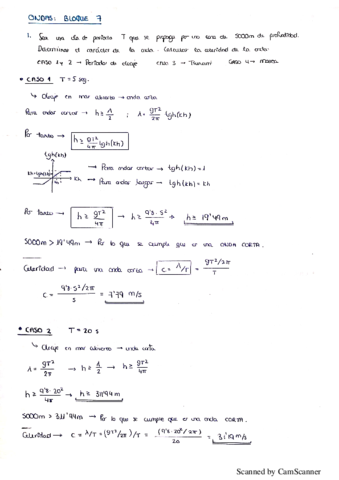 ONDAS: BLOQUE 7
1. Sea una ola de periodo T que se propaga por una zona de 5000m de profundidad.
Determinar el carácter de la onda. Calcular la celeridad de la onda:
caso 1 y 2 → Periodo de oleaje caso 3 → Tsunami caso 4 → marea
• CASO 1 T = 5 seg.
↳ Oleaje en mar abierto → onda corta
Para ondas cortas → h ≥ λ/2 ; λ = gT²/2π tgh(kh)
Por tanto → h ≥ gT²/4π tgh(kh)
tgh(kh)
kh
→ Para ondas cortas → tgh(kh) = 1
→ Para ondas largas → tgh(kh) = kh
Por tanto → h ≥ gT²/4π → h ≥ 9'8·5²/4π → h ≥ 19'49m
5000m > 19'49m → Por lo que se cumple que es una ONDA CORTA.
Celeridad → para una onda corta → C = λ/T = gT²/2π / T
C = 9'8·5²/2π / 5 = 7'79 m/s
• CASO 2 T = 20 s
↳ Oleaje en mar abierto → onda corta
λ = gT²/2π → h ≥ λ/2 → h ≥ gT²/4π
h ≥ 9'8·20²/4π → h ≥ 311'94m
5000m > 311'94m → Por lo que se cumple que es una onda CORTA.
Celeridad → C = λ/T = (gT²/2π)/T = (9'8·20²/2π)/20 = 31'19 m/s
Scanned by CamScanner